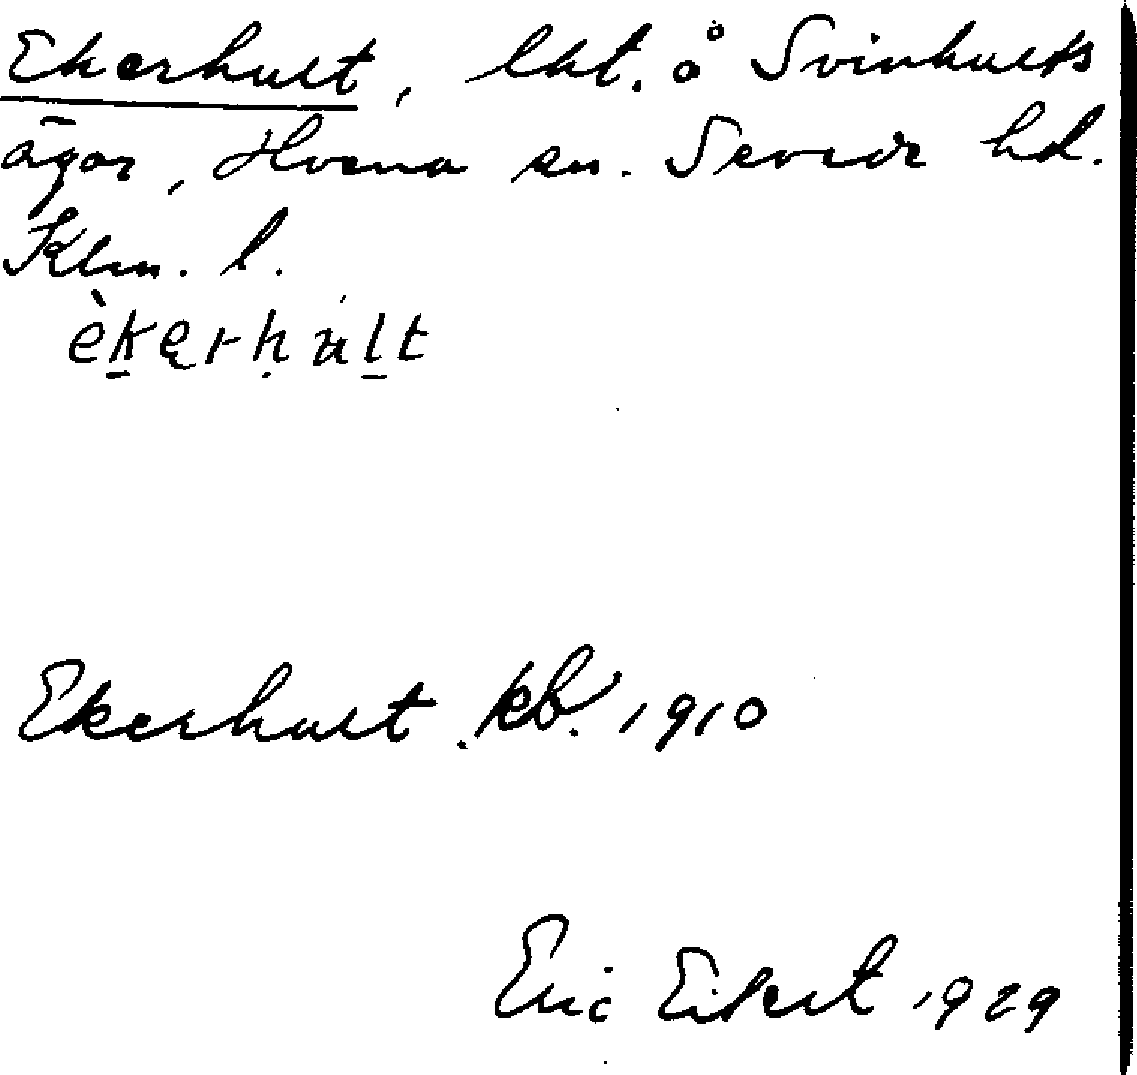 Ekerhult, lht. å Svinhults
ägor, Hvena sn. Sevede hd.
Klm. l.
èkerhult
Ekerhult. kb. 1910
Eric Eifert 1929